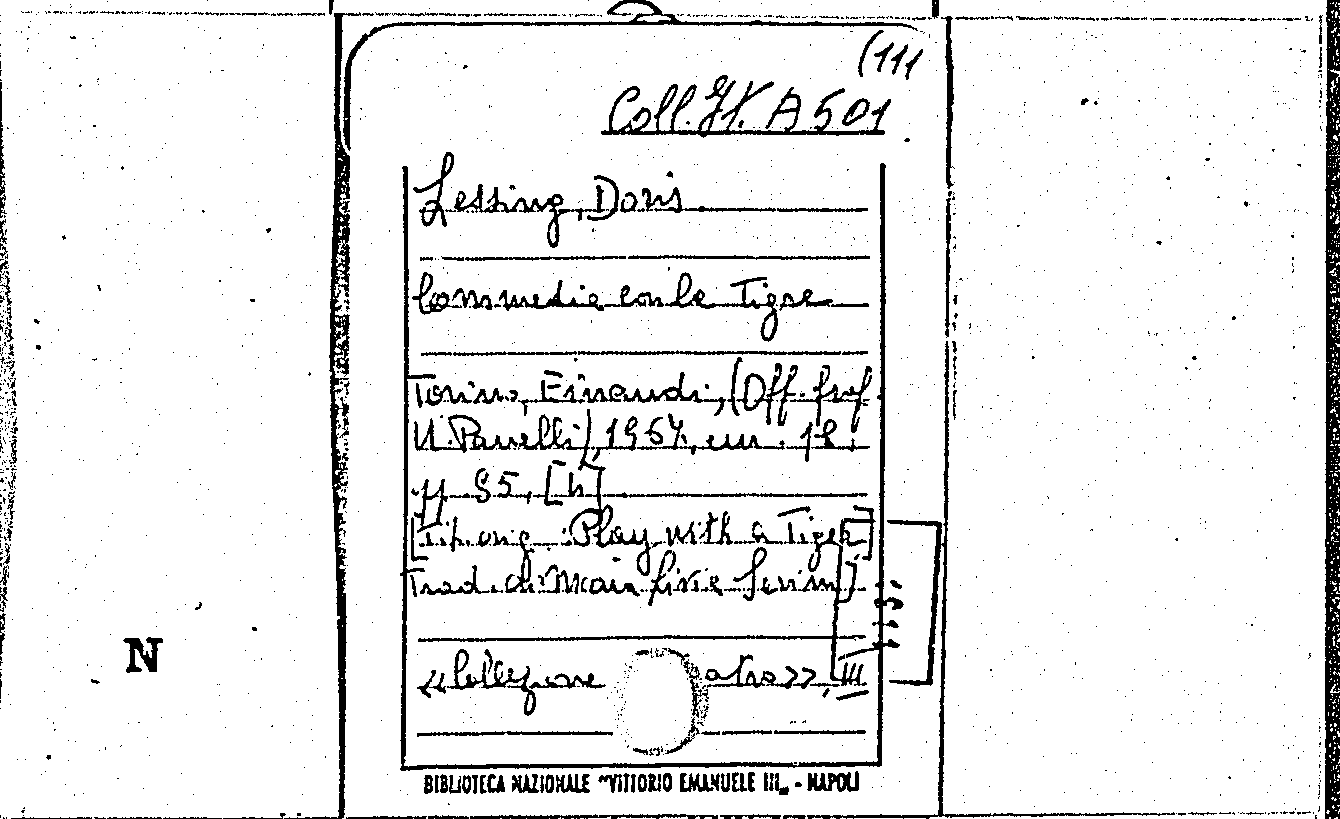 (111
Coll. It. A 501
Lessing, Doris.
Commedia con la Tigre
Torino, Einaudi, (Off. graf.
U. Panelli), 1967, cm. 18.
pp. 85, [4]
[Tit. orig.: Play with a Tiger]
Trad. di Maria Livia Serini]
«Collezione atro», 111
N
BIBLIOTECA NAZIONALE "VITTORIO EMANUELE III„ - NAPOLI